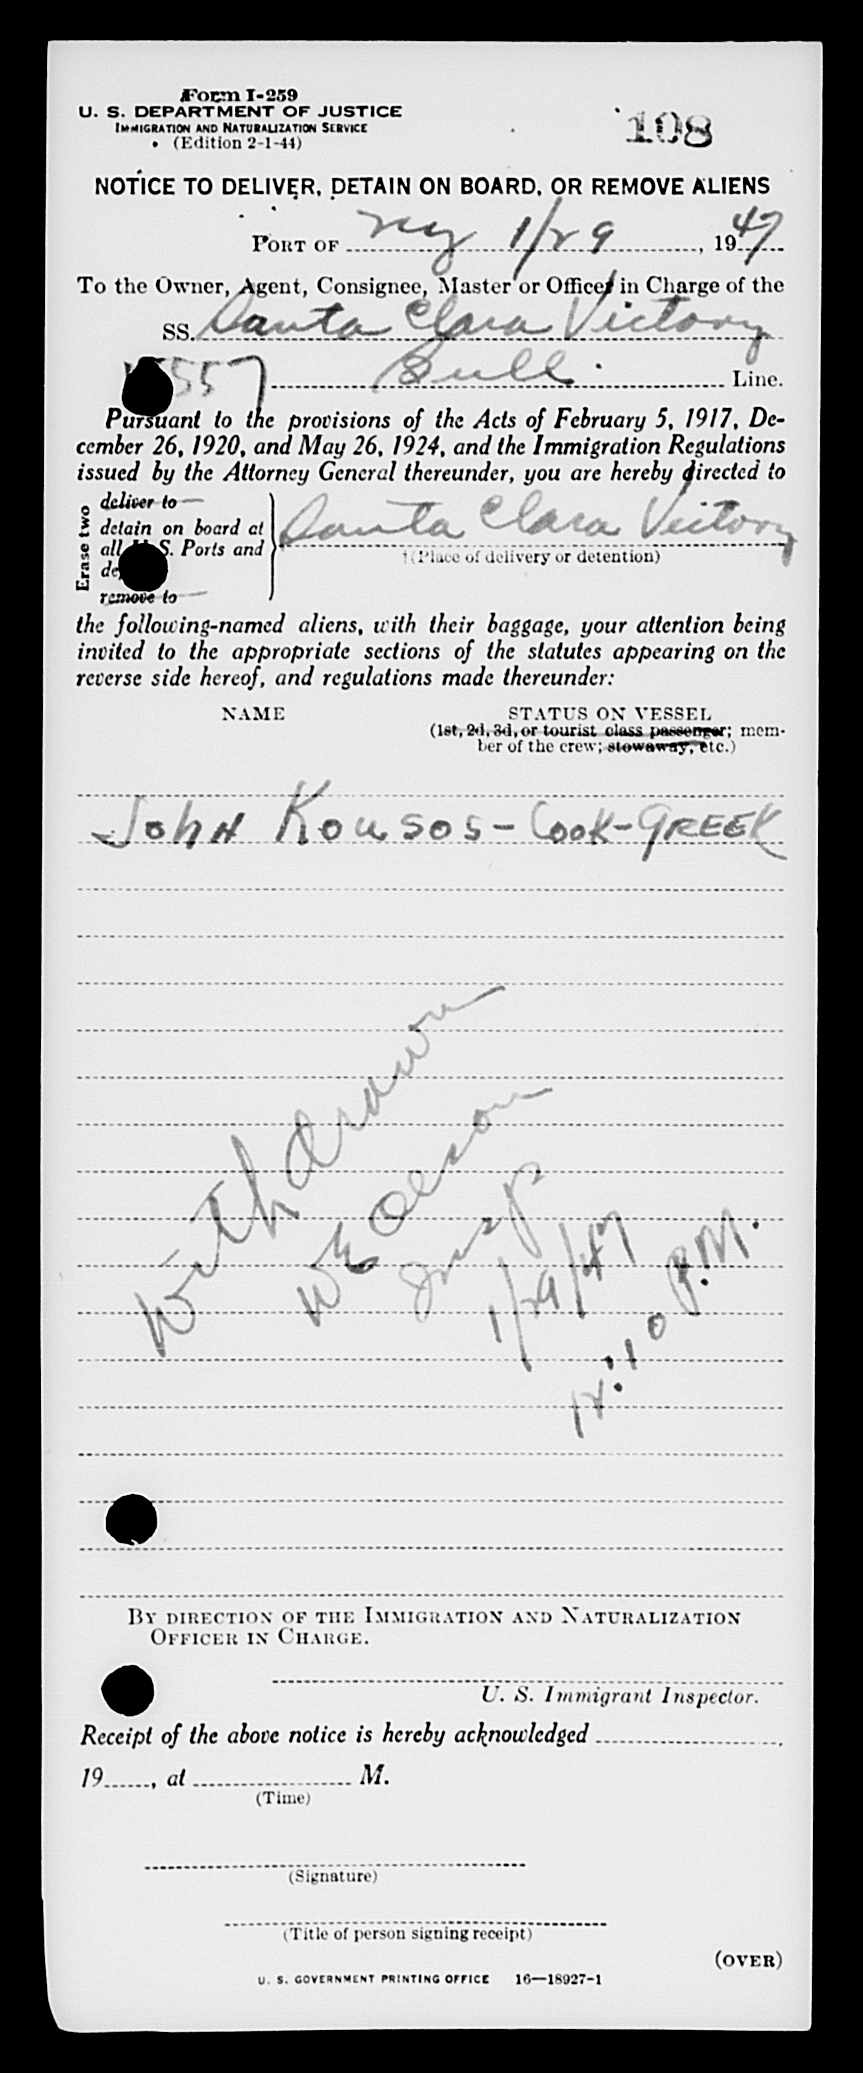 Form I-259
U. S. DEPARTMENT OF JUSTICE
IMMIGRATION AND NATURALIZATION SERVICE
(Edition 2-1-44)
108
NOTICE TO DELIVER, DETAIN ON BOARD, OR REMOVE ALIENS
PORT OF NY 1/29, 1947
To the Owner, Agent, Consignee, Master or Officer in Charge of the
SS. Santa Clara Victory
557 Bull Line.
Pursuant to the provisions of the Acts of February 5, 1917, De-
cember 26, 1920, and May 26, 1924, and the Immigration Regulations
issued by the Attorney General thereunder, you are hereby directed to
Erase two
deliver to
detain on board at
all S. Ports and
remove to
Santa Clara Victory
†(Place of delivery or detention)
the following-named aliens, with their baggage, your attention being
invited to the appropriate sections of the statutes appearing on the
reverse side hereof, and regulations made thereunder:
NAME STATUS ON VESSEL
(1st, 2d, 3d, or tourist class passenger; mem-
ber of the crew; stowaway, etc.)
John Kousos - Cook - GREEK
Withdrawn
WE Olson
Insp
1/29/47
12:10 P.M.
BY DIRECTION OF THE IMMIGRATION AND NATURALIZATION
OFFICER IN CHARGE.
U. S. Immigrant Inspector.
Receipt of the above notice is hereby acknowledged
19, at M.
(Time)
(Signature)
(Title of person signing receipt)
(OVER)
U. S. GOVERNMENT PRINTING OFFICE 16—18927-1